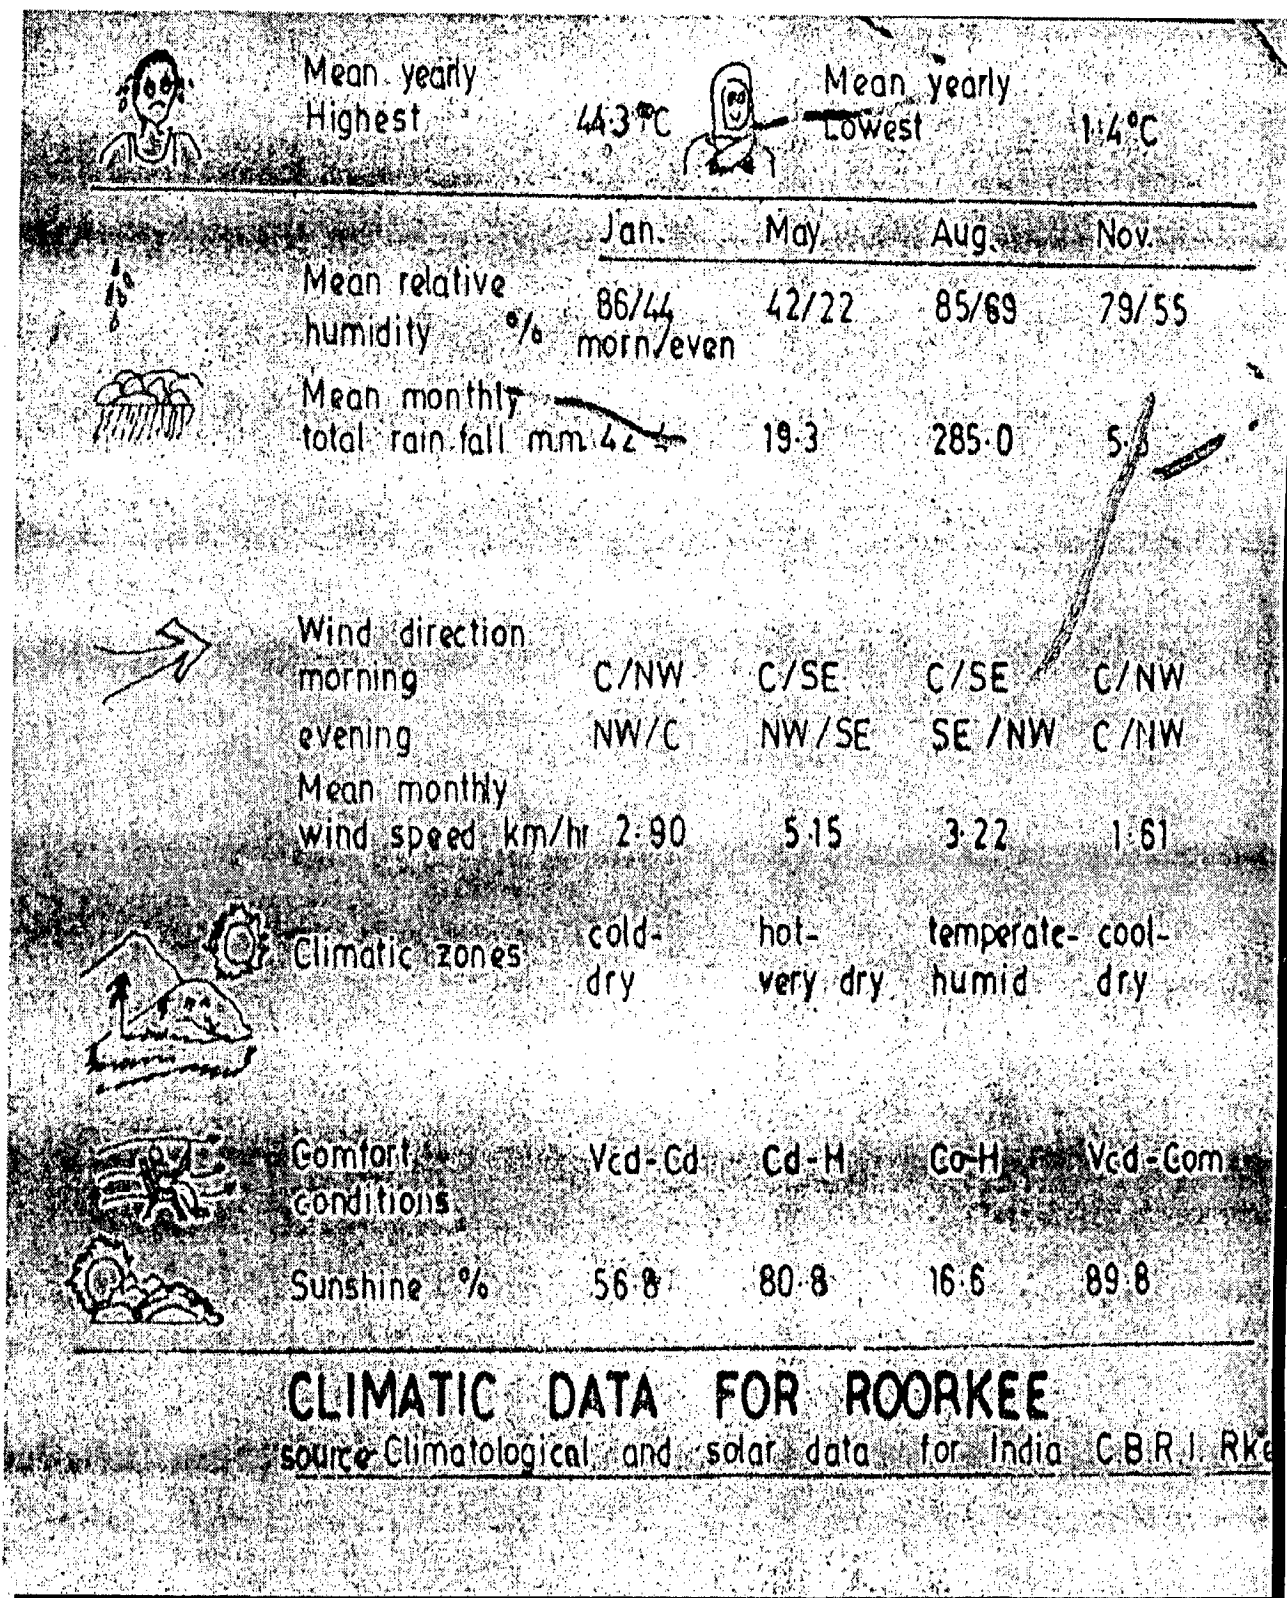 Mean yearly Highest 44.3°C Mean yearly Lowest 1.4°C
Jan. May. Aug. Nov.
Mean relative humidity % 86/44 42/22 85/69 79/55
morn/even
Mean monthly
total rain fall m.m. 19.3 285.0
Wind direction
morning C/NW C/SE C/SE C/NW
evening NW/C NW/SE SE/NW C/NW
Mean monthly
wind speed km/hr 2.90 5.15 3.22 1.61
Climatic zones cold-dry hot-very dry temperate-humid cool-dry
Comfort conditions Vcd-Cd Cd-H Co-H Vcd-Com
Sunshine % 56.8 80.8 16.6 89.8
CLIMATIC DATA FOR ROORKEE
source-Climatological and solar data for India C.B.R.I. Rke